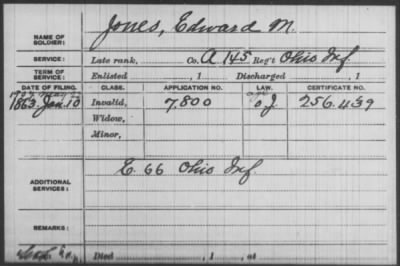 NAME OF SOLDIER: Jones, Edward M.
SERVICE: Late rank, Co. A 145 Reg't Ohio Inf.
TERM OF SERVICE: Enlisted , 1 Discharged , 1
DATE OF FILING. CLASS. APPLICATION NO. LAW. CERTIFICATE NO.
1863. Jan. 10 Invalid, 7.800 256.439
Widow,
Minor,
ADDITIONAL SERVICES: E. 66 Ohio Inf.
REMARKS:
Died , 1 , at